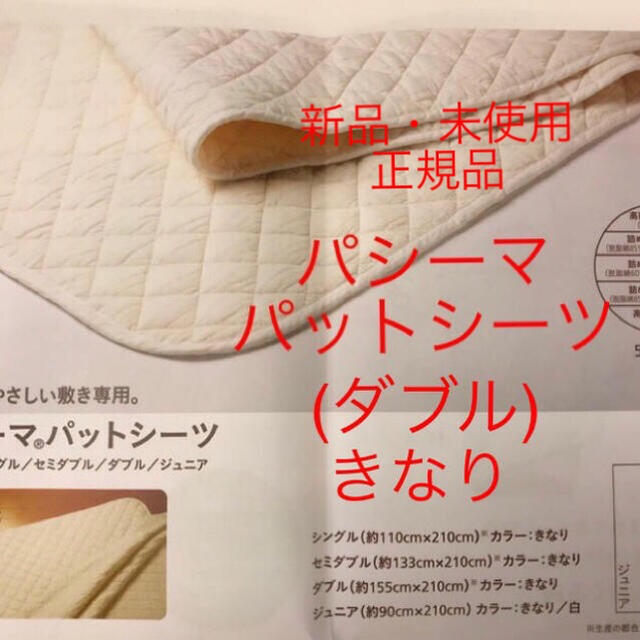 新品・未使用
正規品
パシーマ
パットシーツ
(ダブル)
きなり
やさしい敷き専用。
ーマ®パットシーツ
グル／セミダブル／ダブル／ジュニア
シングル（約110cm×210cm）※カラー：きなり
セミダブル（約133cm×210cm）※カラー：きなり
ダブル（約155cm×210cm）※カラー：きなり
ジュニア（約90cm×210cm）カラー：きなり／白
ジュニア
※生産の都合